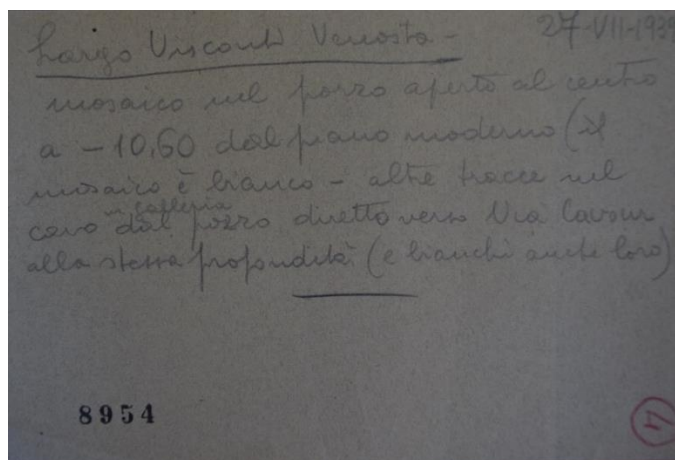 Largo Visconti Venosta – 27-VII-1939
mosaico nel pozzo aperto al centro
a – 10,60 dal piano moderno (il
mosaico è bianco – altre tracce nel
cavo in galleria dal pozzo diretto verso Via Cavour
alla stessa profondità (e bianchi anche loro)
8954